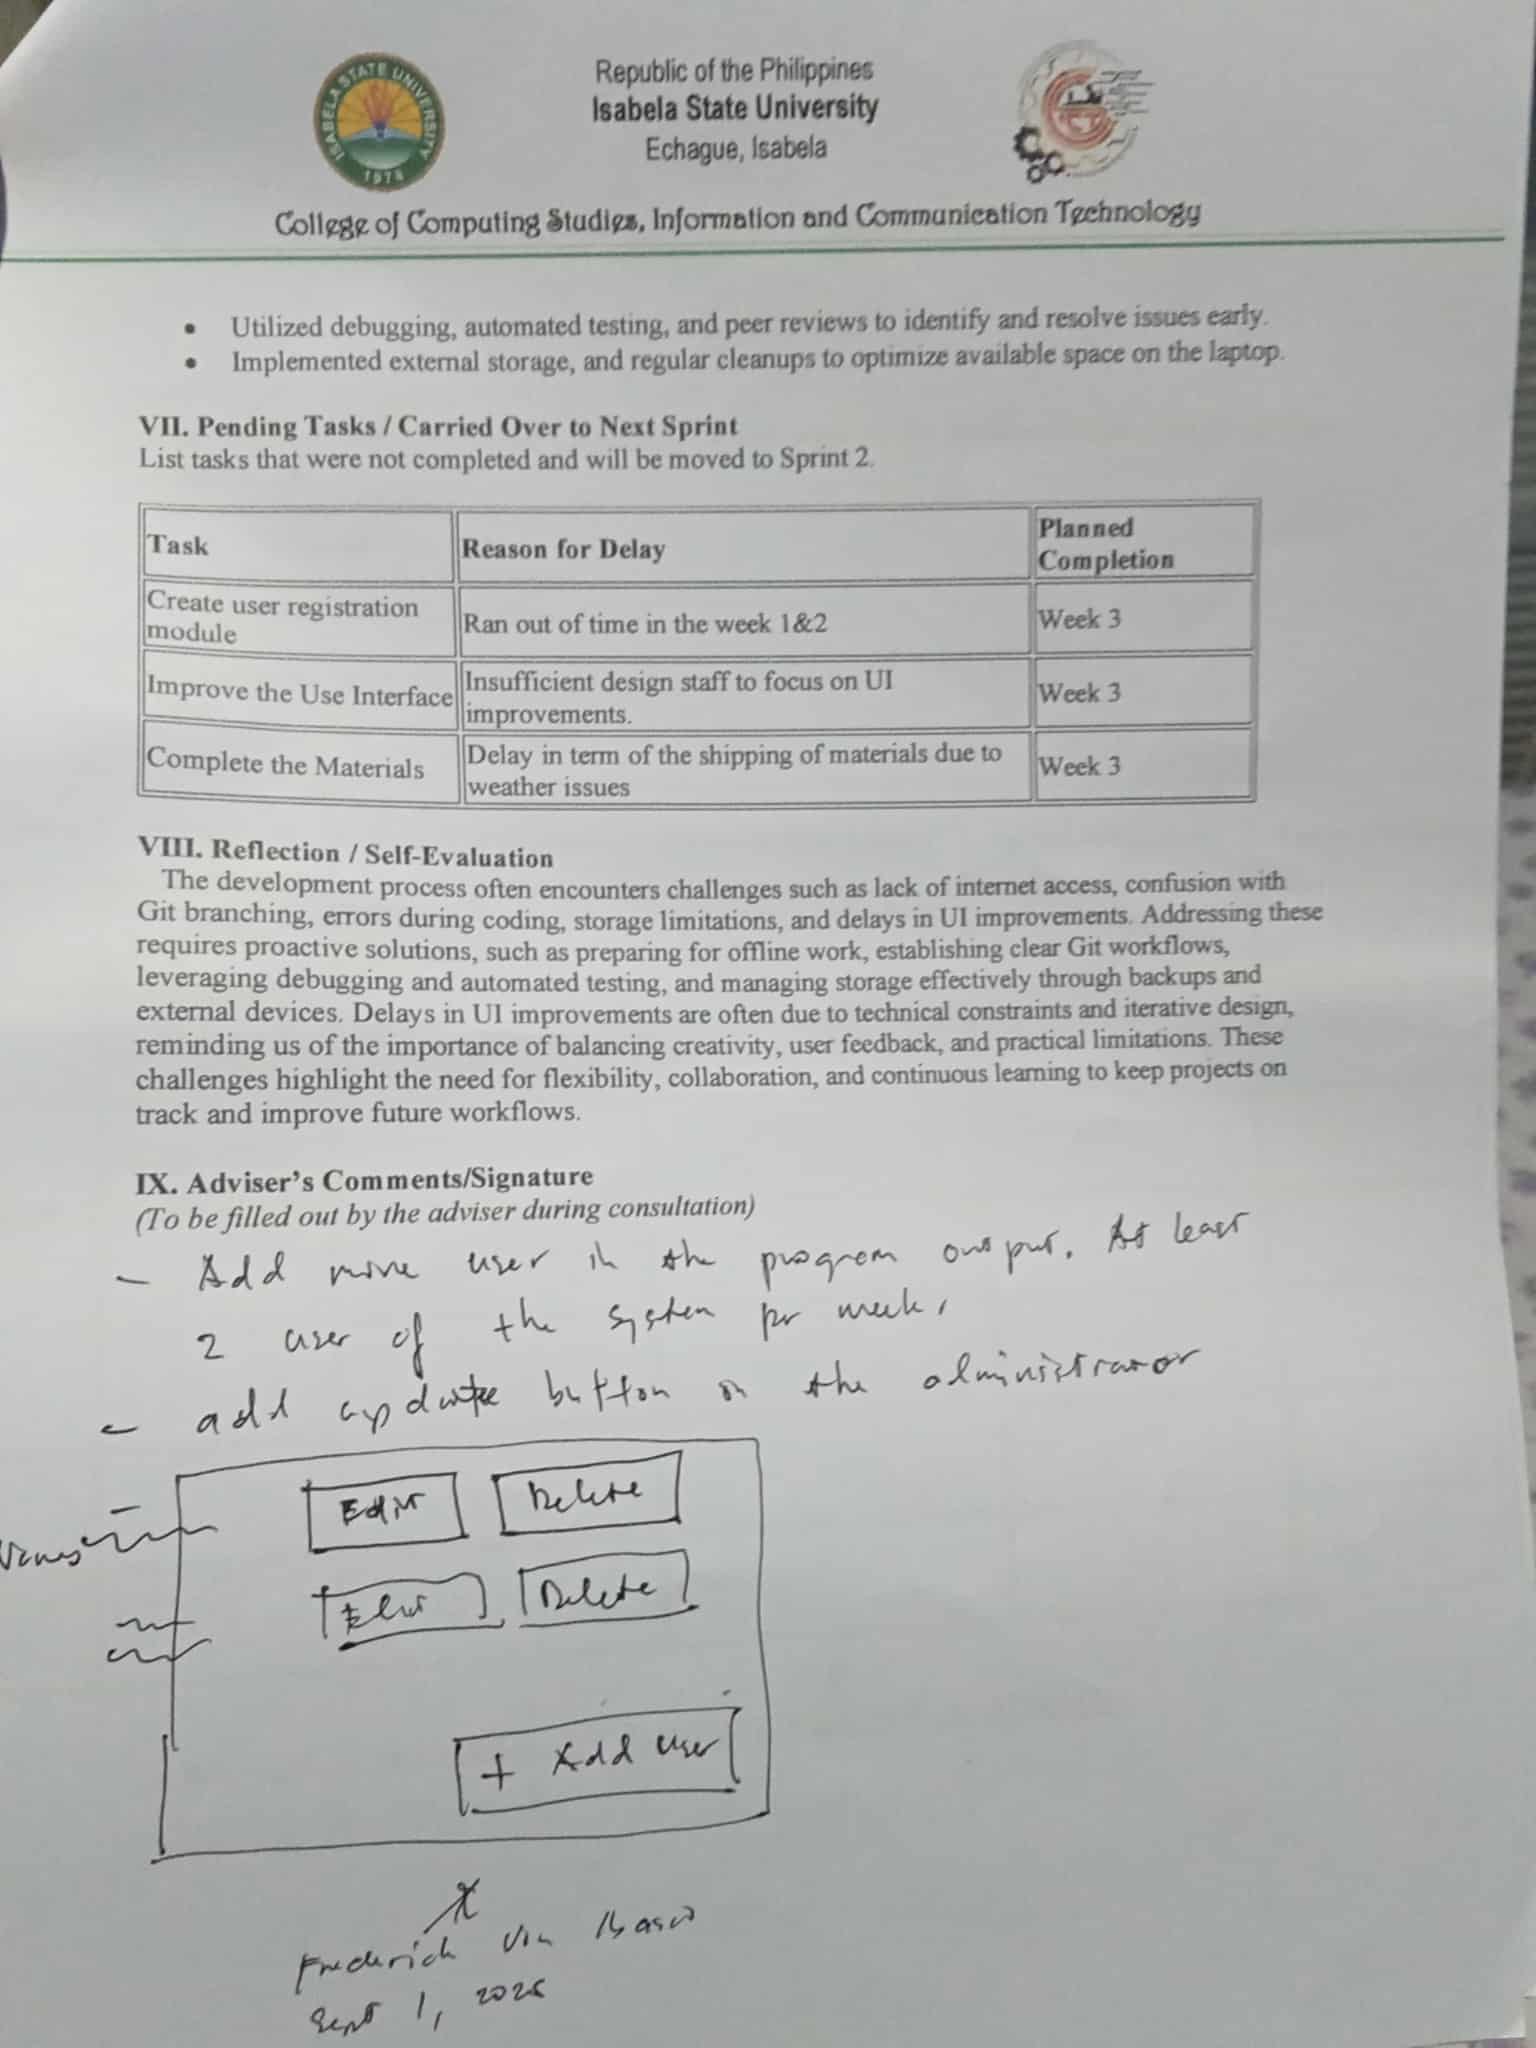 ISABELA STATE UNIVERSITY
1978
Republic of the Philippines
Isabela State University
Echague, Isabela
College of Computing Studies, Information and Communication Technology
• Utilized debugging, automated testing, and peer reviews to identify and resolve issues early.
• Implemented external storage, and regular cleanups to optimize available space on the laptop.
VII. Pending Tasks / Carried Over to Next Sprint
List tasks that were not completed and will be moved to Sprint 2.
Task
Reason for Delay
Planned
Completion
Create user registration
module
Ran out of time in the week 1&2
Week 3
Improve the Use Interface
Insufficient design staff to focus on UI
improvements.
Week 3
Complete the Materials
Delay in term of the shipping of materials due to
weather issues
Week 3
VIII. Reflection / Self-Evaluation
The development process often encounters challenges such as lack of internet access, confusion with
Git branching, errors during coding, storage limitations, and delays in UI improvements. Addressing these
requires proactive solutions, such as preparing for offline work, establishing clear Git workflows,
leveraging debugging and automated testing, and managing storage effectively through backups and
external devices. Delays in UI improvements are often due to technical constraints and iterative design,
reminding us of the importance of balancing creativity, user feedback, and practical limitations. These
challenges highlight the need for flexibility, collaboration, and continuous learning to keep projects on
track and improve future workflows.
IX. Adviser's Comments/Signature
(To be filled out by the adviser during consultation)
- Add more user in the program output. At least
2 user of the system per week,
- add update button on the administrator
Edit
Delete
Edit
Delete
+ Add user
Frederick Von Basco
Sept 1, 2025